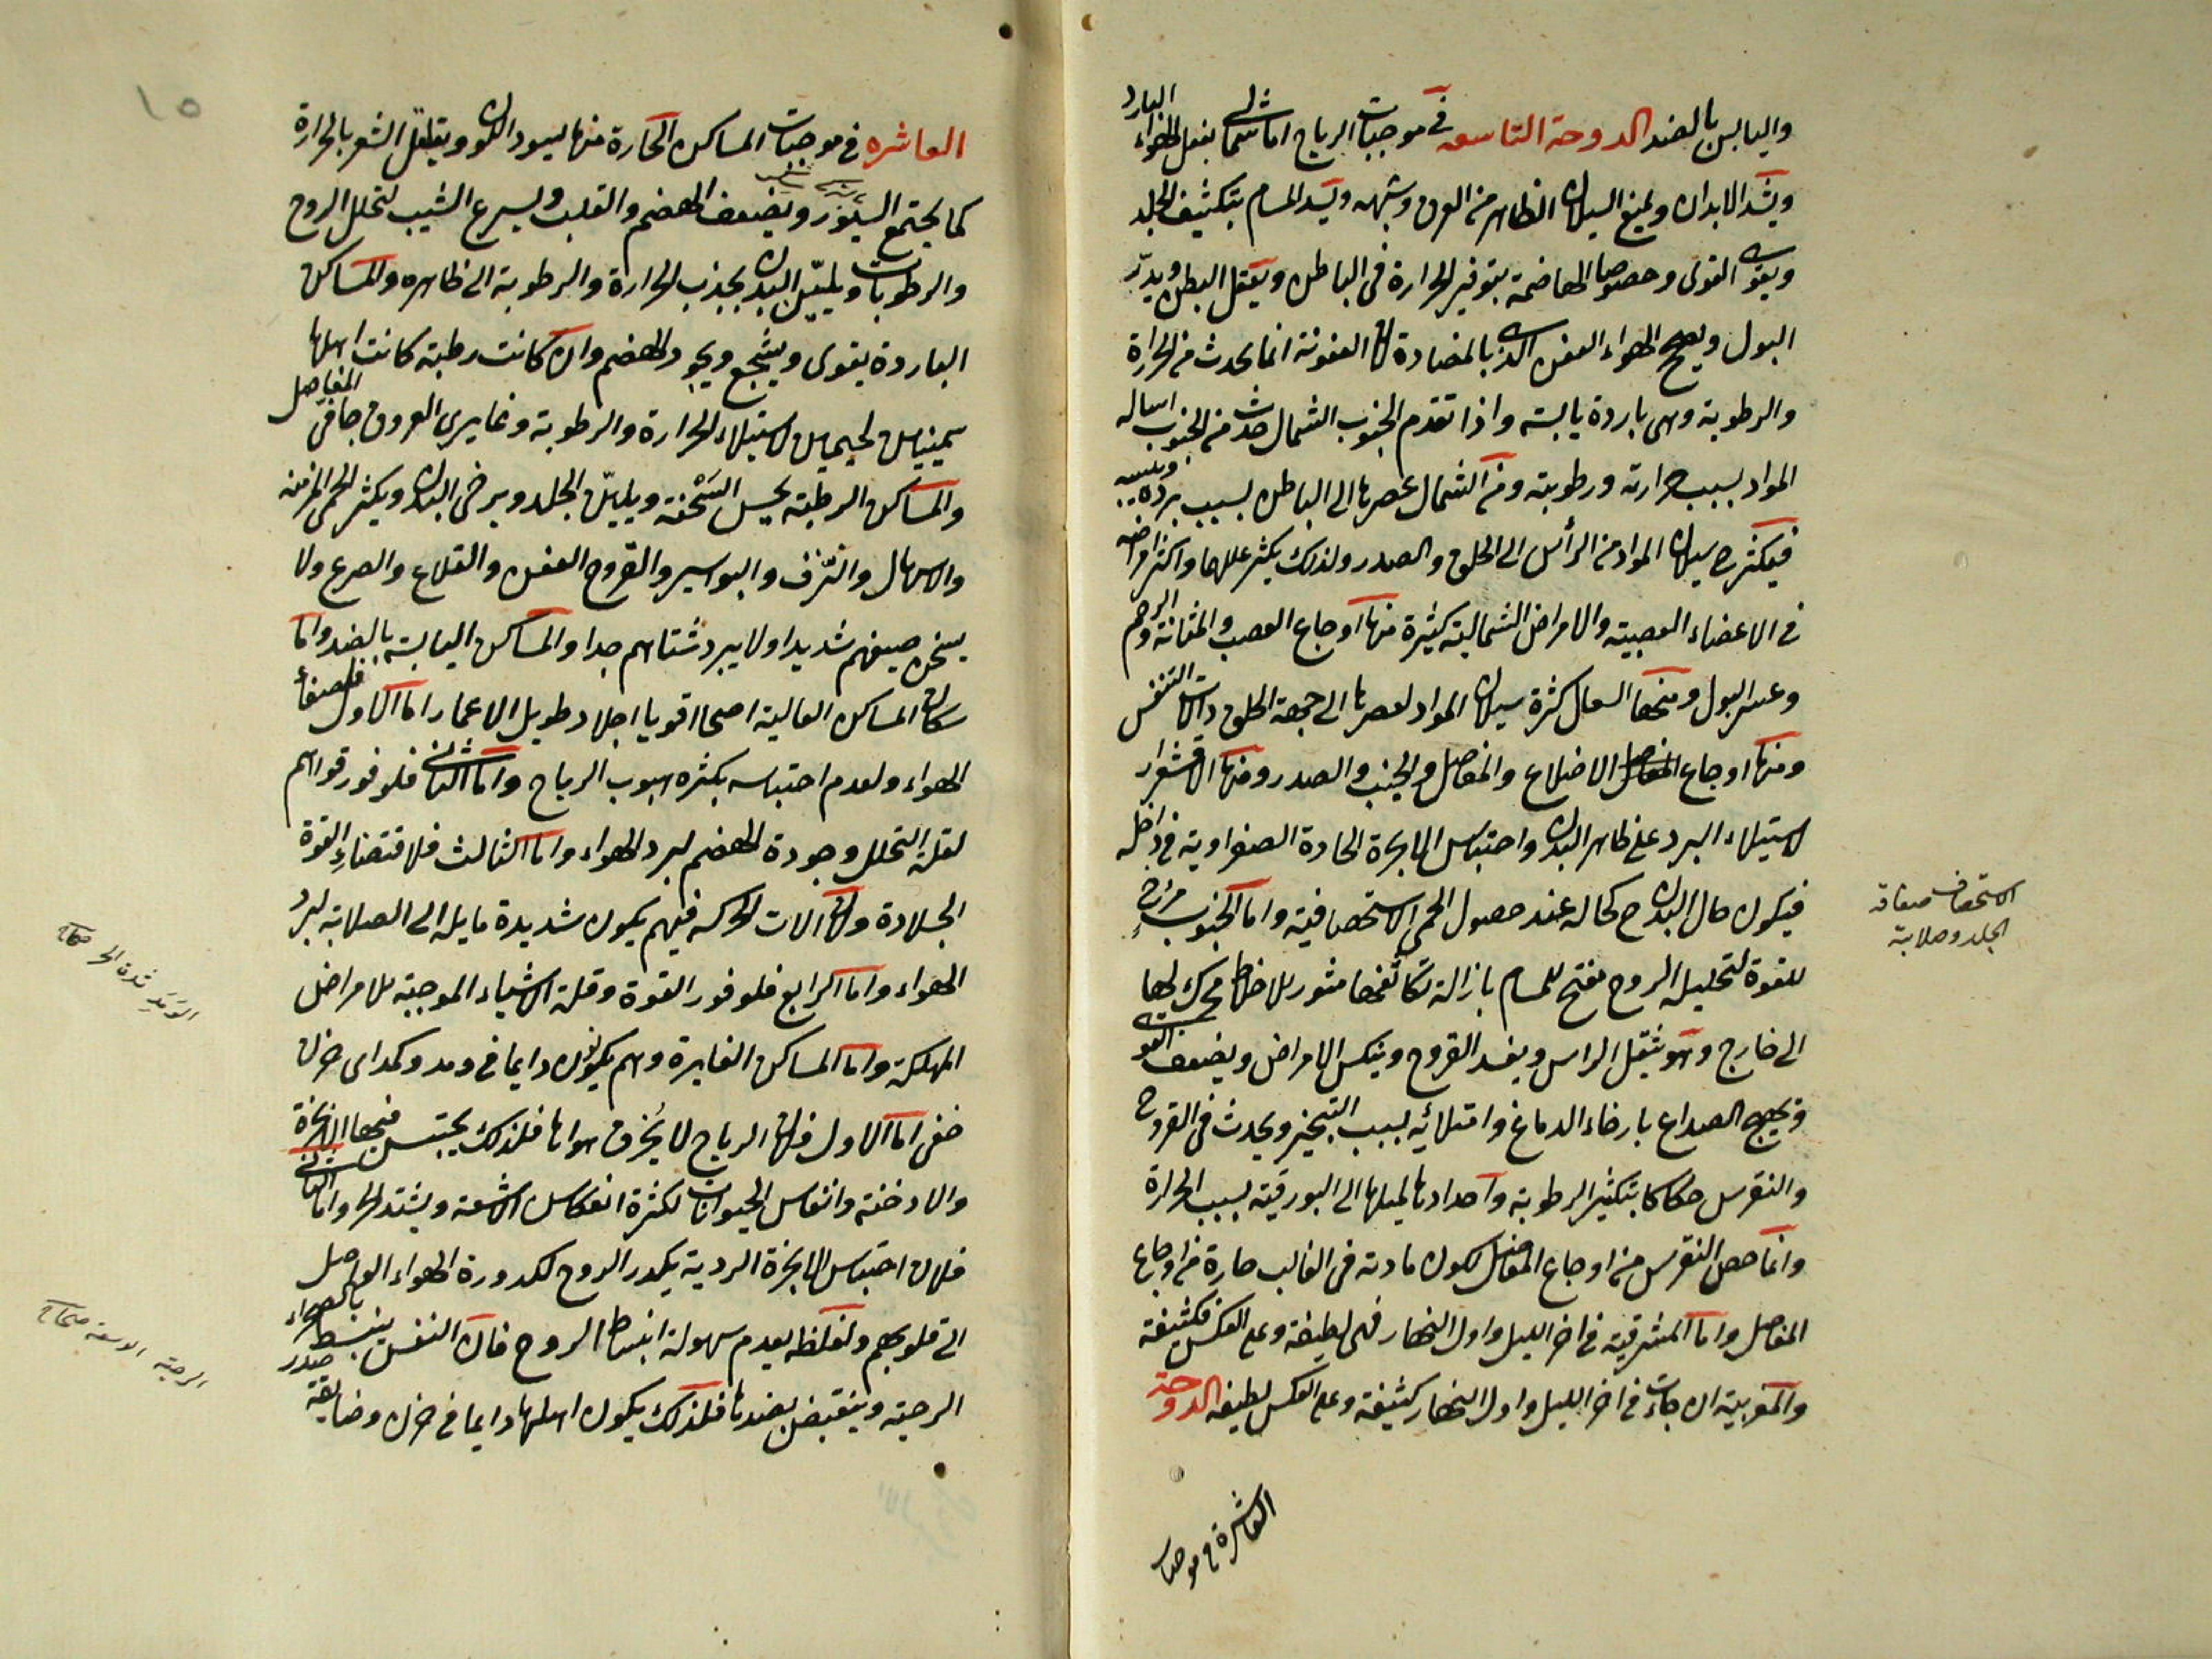 واليابس بالضد الدوحة التاسعه في موجبات الرياح اما شمالى بنقل الهواء البارد
ويشد الابدان ويمنع السيلان الظاهر من العرق وشبهه ويسد المسام بتكثيف الجلد
ويقوى القوى وخصوصا الهاضمة بتوفير الحرارة فى الباطن ويعقل البطن ويدرّ
البول ويصح الهواء العفن الذى بالمضادة لان العفونة انما يحدث من الحرارة
والرطوبة وهى باردة يابسة واذا تقدم الجنوب الشمال حدث من الجنوب اساله
المواد بسبب حرارته ورطوبته ومن الشمال عصرها الى الباطن بسبب برده ويبسه
فيكثر ح سيلان المواد من الرأس الى الحلق والصدر ولذلك يكثر عللهما واكثر امراضه
فى الاعضاء العصبية والامراض الشمالية كثيرة منها اوجاع العصب والمثانة والرحم
وعسر البول ومنها السعال كثرة سيلان المواد لعصرها الى جهة الحلق والات التنفس
ومنها اوجاع الاضلاع والمفاصل والجنب والصدر ومنها الاقشعرار
لاستيلاء البرد على ظاهر البدن واحتباس الابخرة الحادة الصفراوية فى داخله
فيكون حال البدن ح كحاله عند حصول الحمى الاستحصافية واما الجنوب مرخ
للقوة لتحليله الروح مفتح للمسام بازالة تكاثفها مثور للاخلاط محرك لها
الى خارج وهو يثقل الراس ويفسد القروح وينكس الامراض ويضعف القوى
ويهيج الصداع بارخاء الدماغ وامتلائه بسبب التبخير ويحدث فى القروح
والنقرس حكاكا بتكثير الرطوبة واحدادها لميلها الى البورقية بسبب الحرارة
وانما خص النقرس من اوجاع المفاصل لكون مادته فى الغالب حارة من اوجاع
المفاصل واما المشرقية فى اخر الليل واول النهار فهى لطيفة وعلى العكس فكثيفة
والمغربية ان جاءت فى اخر الليل واول النهار كثيفة وعلى العكس لطيفه الدوحة
العاشرة فى موجبات
الاستحصاف صفاقة
الجلد وصلابته
١٥
العاشره فى موجبات المساكن الحارة منها يسود اللون ويتفلفل الشعر بالحرارة
كما يجتمع السيور ويضعف الهضم والقلب ويسرع الشيب لتحلل الروح
والرطوبات ويليّن البدن بجذب الحرارة والرطوبة الى ظاهره والمساكن
الباردة يقوى ويشجع ويجود الهضم وان كانت رطبة كانت اهلها
سمينين لحيمين لاستيلاء الحرارة والرطوبة وغايرى العروق جافى المفاصل
والمساكن الرطبة يحسن السَّحْنة ويليّن الجلد ويرخى البدن ويكثر الحمى المزمنه
والاسهال والنزف والبواسير والقروح العفن والقلاع والصرع ولا
يسخن صيفهم شديدا ولا يبرد شتاهم جدا والمساكن اليابسة بالضد واما
سكان المساكن العالية اصحا اقويا اجلاد طويل الاعمار اما الاول فلصفاء
الهواء ولعدم احتباسه بكثرة هبوب الرياح واما الثانى فلوفور قواهم
لقلة التحلل وجودة الهضم لبرد الهواء واما الثالث فلاقتضاء القوة
الجلادة ولان الات الحركه فيهم يكون شديدة مايله الى الصلابة لبرد
الهواء واما الرابع فلوفور القوة وقلة الاشياء الموجبة للامراض
المهلكة واما المساكن الغايرة وهم يكونون دايما فى ومد وكمد اى حزن
خفى اما الاول فلان الرياح لا يخرق هواها فلذلك يحتبس فيها الابخرة
والادخنة وانفاس الحيوانات لكثرة انعكاس الاشعة ويشتد الحر واما الثانى
فلان احتباس الابخرة الردية يكدر الروح لكدورة الهواء الواصل
الى قلوبهم ولغلظه يعدم سهولة انبساط الروح فان النفس ينبسط بالصحراء
الرحبة وينقبض بضدها فلذلك يكون اهلها دايما فى حزن وضايقة صدر
الوَمَد شدة الحر صحاح
الرحبة الاوسعة صحاح